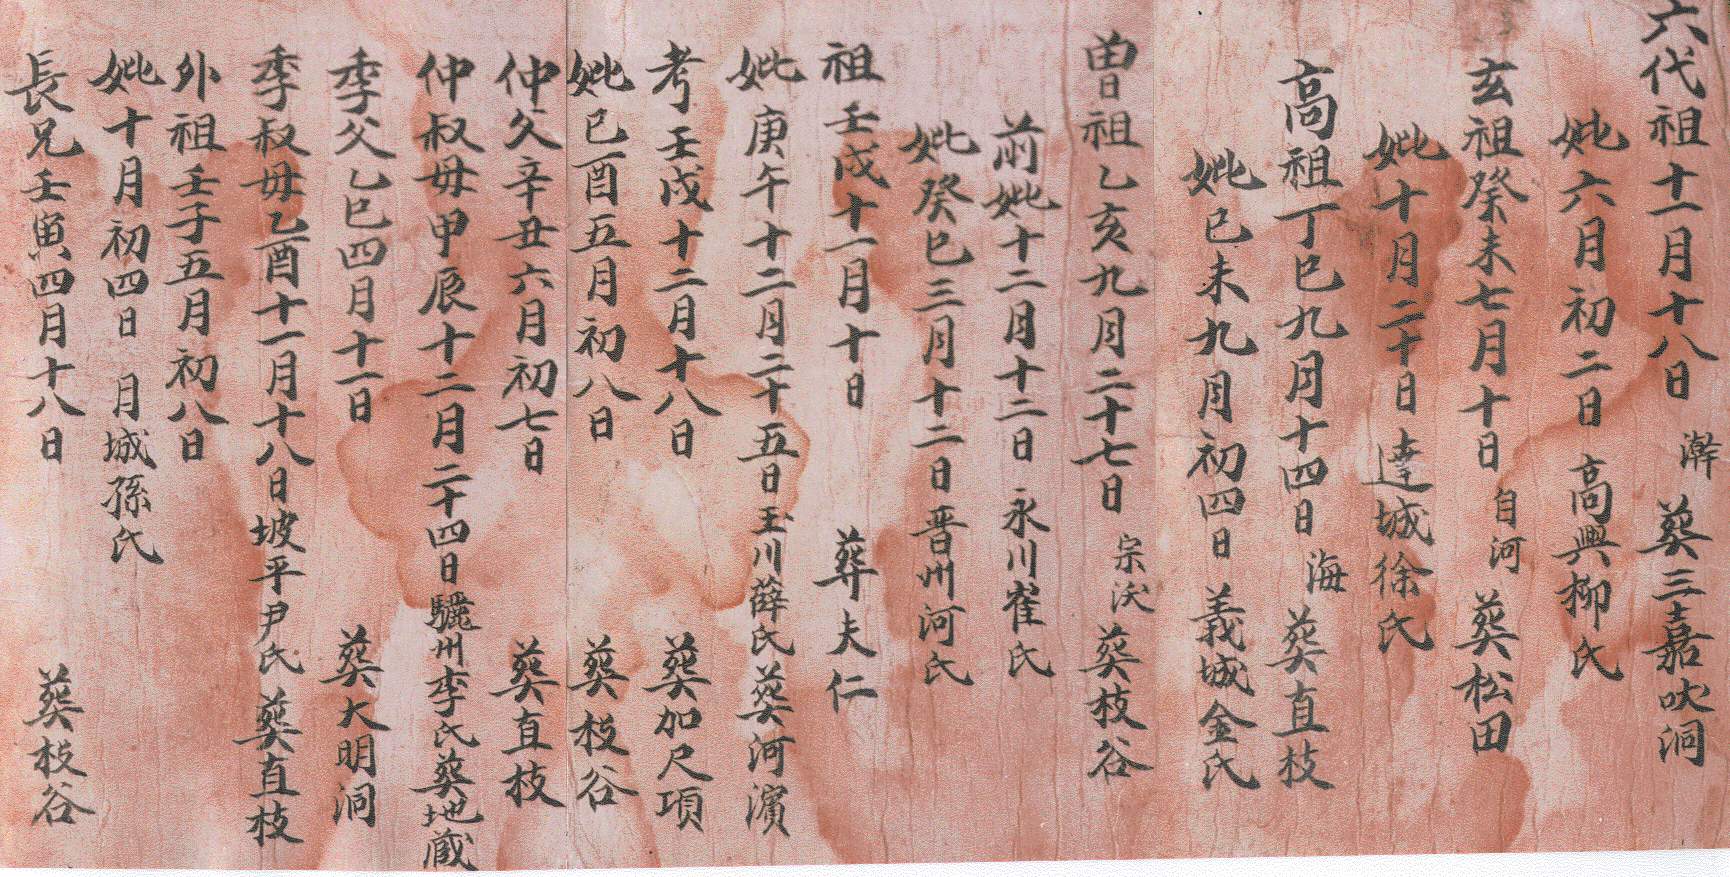 六代祖十一月十八日 澣 葬三嘉吹洞
妣六月初二日 高興柳氏
玄祖癸未七月十日 自河 葬松田
妣十月二十日 達城徐氏
高祖丁巳九月十四日 海 葬直枝
妣巳未九月初四日 義城金氏
曽祖乙亥九月二十七日 宗沃 葬枝谷
前妣十二月十二日 永川崔氏
妣癸巳三月十二日 晋州河氏
祖壬戌十一月十日 葬夫仁
妣庚午十二月二十五日玉川薛氏 葬河濱
考壬戌十二月十八日 葬加尺項
妣巳酉五月初八日 葬枝谷
仲父辛丑六月初七日 葬直枝
仲叔母甲辰十二月二十四日驪州李氏葬地蔵
季父乙巳四月十一日 葬大明洞
季叔母乙酉十一月十八日坡平尹氏 葬直枝
外祖壬子五月初八日
妣十月初四日 月城孫氏
長兄壬寅四月十八日 葬枝谷